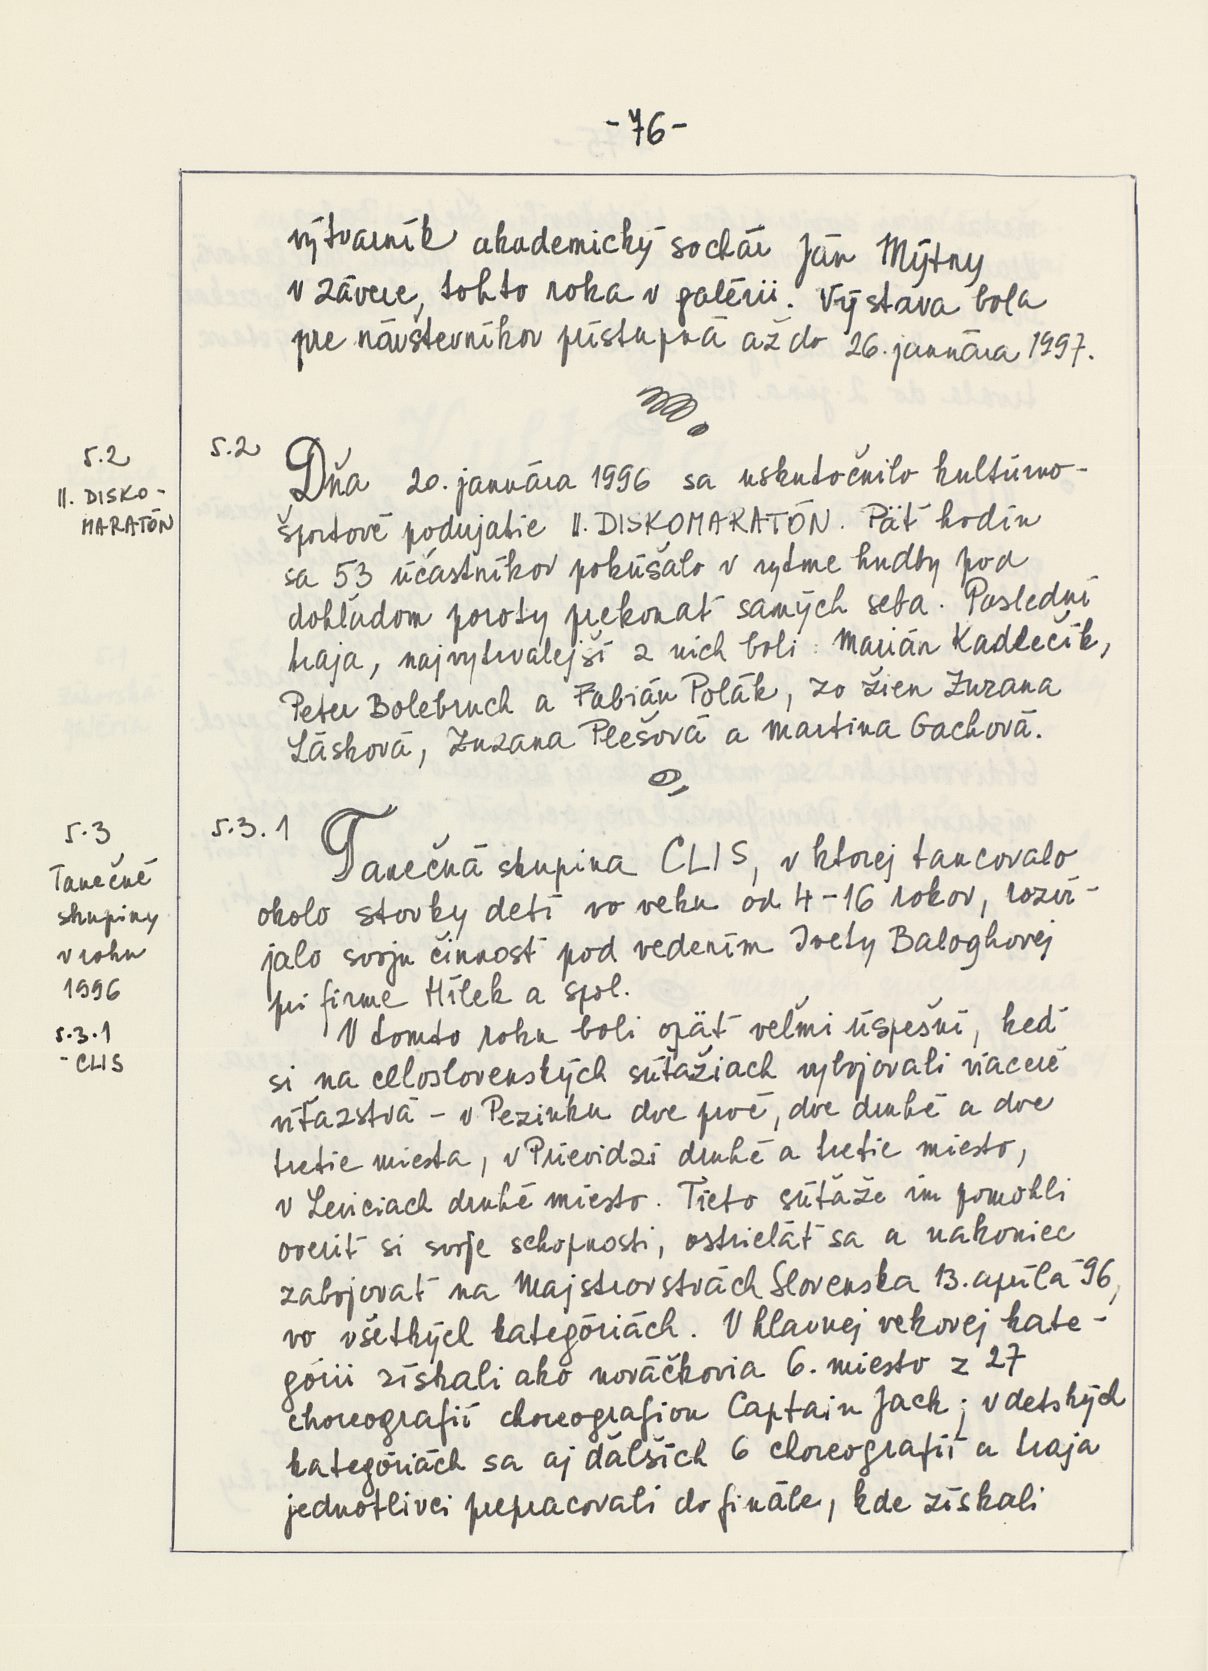 -76-
výtvarník akademický sochár Ján Mýtny
v závere, tohto roka v galérii. Výstava bola
pre návštevníkov prístupná až do 26. januára 1997.
5.2
II. DISKO-
MARATÓN
5.2 Dňa 20. januára 1996 sa uskutočnilo kultúrno-
športové podujatie II. DISKOMARATÓN. Päť hodín
sa 53 účastníkov pokúšalo v rytme hudby pod
dohľadom poroty prekonať samých seba. Poslední
traja, najvytrvalejší z nich boli: Marián Kadlečík,
Peter Bolebruch a Fabián Polák, zo žien Zuzana
Lásková, Zuzana Plešová a Martina Gachová.
5.3
Tanečné
skupiny
v roku
1996
5.3.1
- CLIS
5.3.1 Tanečná skupina CLIS, v ktorej tancovalo
okolo stovky detí vo veku od 4-16 rokov, rozví-
jalo svoju činnosť pod vedením Ivety Baloghovej
pri firme Hílek a spol.
V tomto roku boli opäť veľmi úspešní, keď
si na celoslovenských súťažiach vybojovali viaceré
víťazstvá - v Pezinku dve prvé, dve druhé a dve
tretie miesta, v Prievidzi druhé a tretie miesto,
v Leviciach druhé miesto. Tieto súťaže im pomohli
overiť si svoje schopnosti, ostrieľať sa a nakoniec
zabojovať na Majstrovstvách Slovenska 13. apríla 96,
vo všetkých kategóriách. V hlavnej vekovej kate-
górii získali ako nováčkovia 6. miesto z 27
choreografií choreografiou Captain Jack; v detských
kategóriách sa aj ďalších 6 choreografií a traja
jednotlivci prepracovali do finále, kde získali